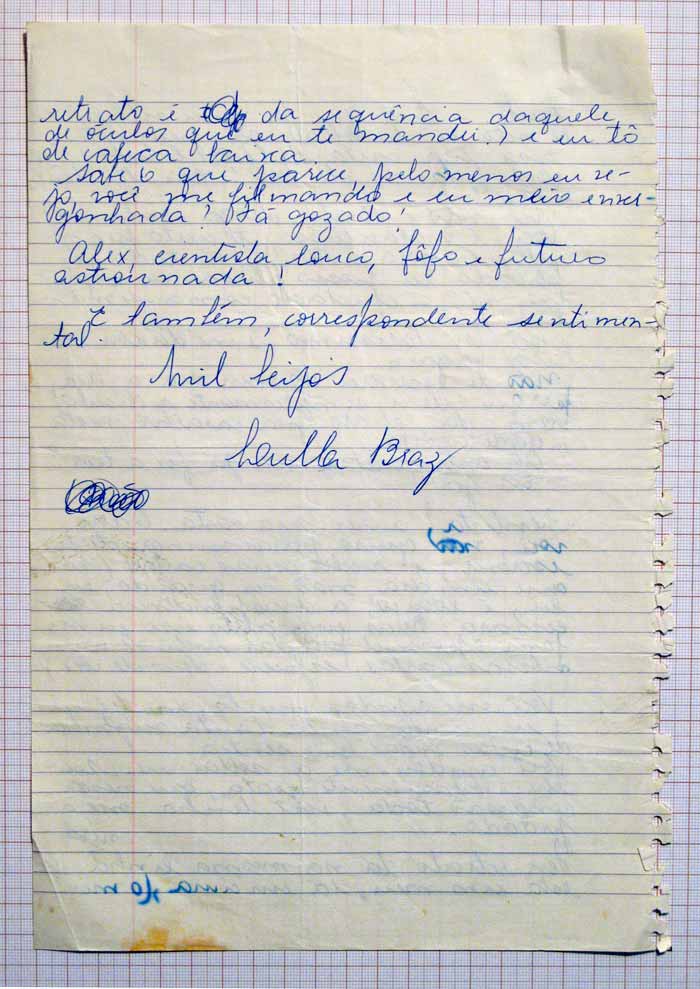 retrato é da sequência daquele
de óculos que eu te mandei.) e eu tô
de cabeça baixa.
Sabe o que parece, pelo menos eu ve-
jo, você me filmando e eu meio enver-
gonhada! Tá gozado!
Alex, cientista louco, fôfo e futuro
astronada!
E também, correspondente sentimen-
tal.
Mil beijos
Braz